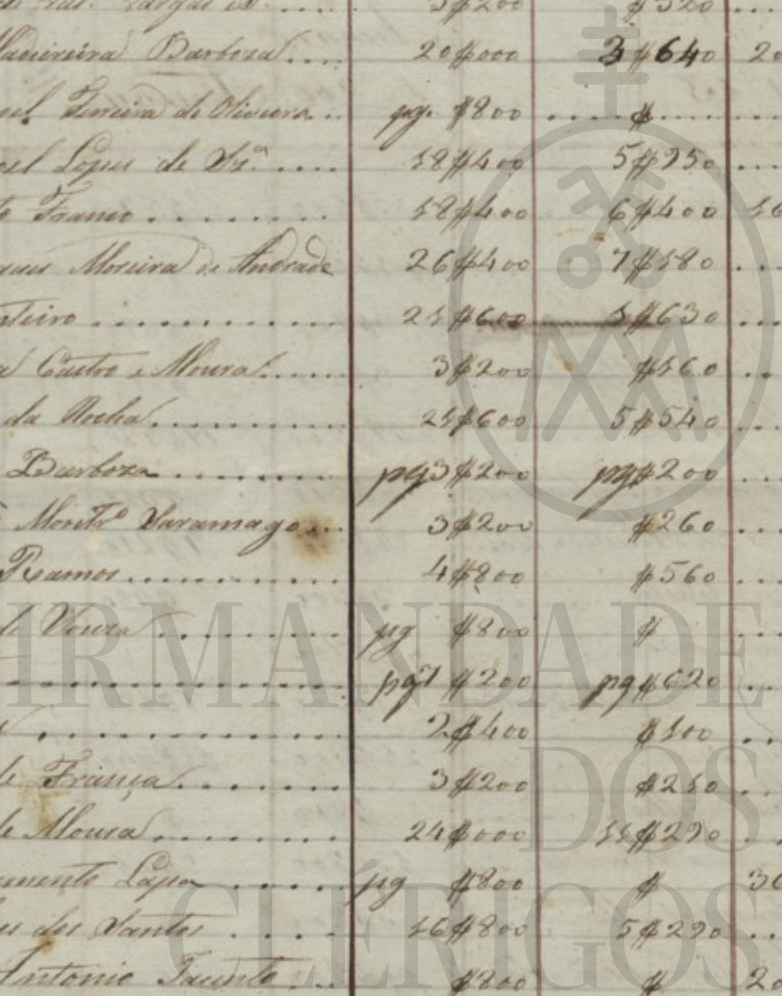 3$200 $320 ....
Barboza.... 20$000 3$640 20
Ferreira de Oliveira.. pg. $800 .... $ ....
Lopes de Sz.ª .... 18$400 5$950 ....
Franco........ 18$400 6$400 16
Moreira de Andrade 26$400 7$180 ...
nteiro........... 21$600 1$630 ...
Castro e Moura.... 3$200 $160 ...
da Rocha........... 21$600 5$540 ...
Barboza........... pg 3$200 pg $200 ...
Montr.º Saramago... 3$200 $260 ...
Ramos............. 4$800 $560 ...
de Souza........... pg $800 $ ...
................ pg 1$200 pg $620 ...
................ 2$400 $100 ...
de França......... 3$200 $210 ...
de Moura.......... 24$000 11$290 ...
Lapa ...... pg $800 $ 30
dos Santos ..... 16$800 5$290 ...
Antonio ... $800 $ 20
IRMANDADE
DOS
CLERIGOS